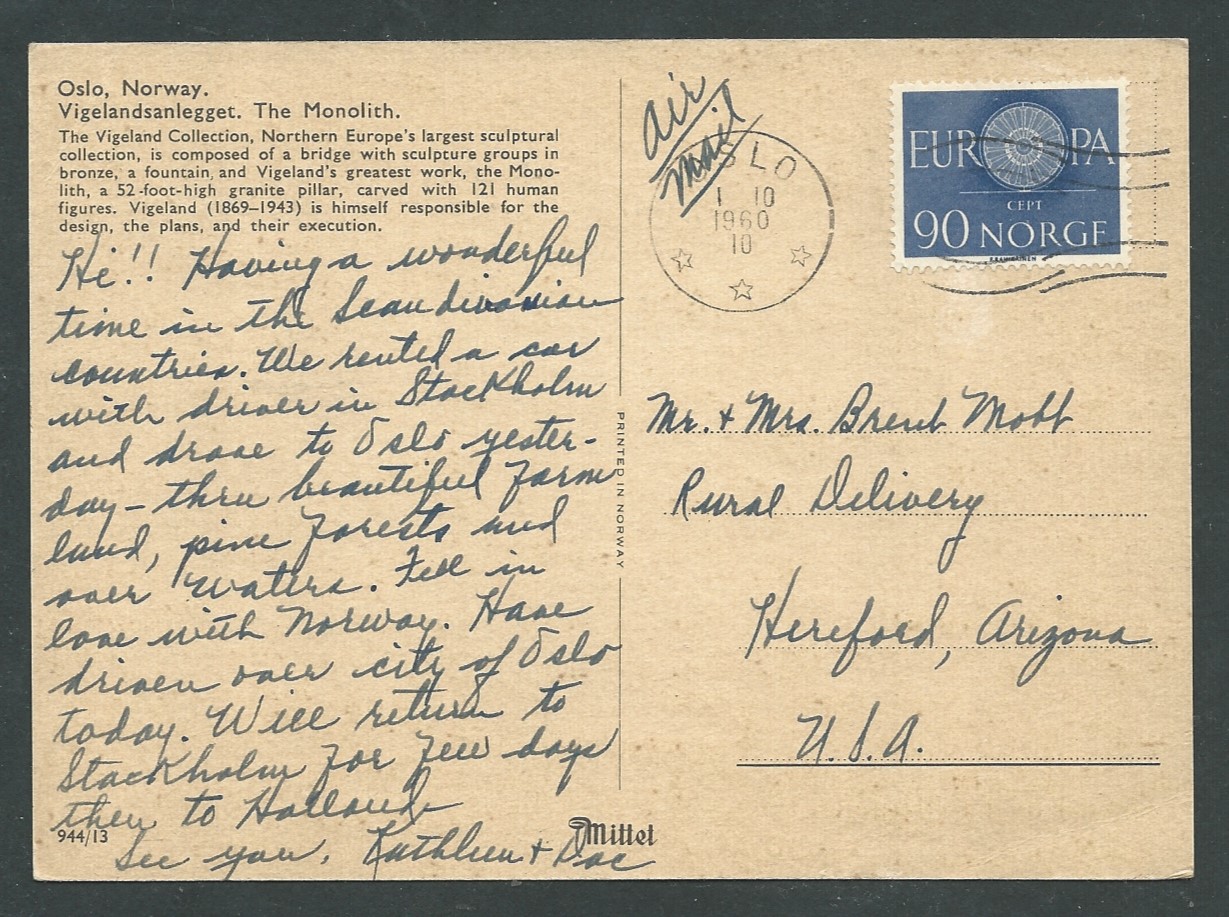 Oslo, Norway.
Vigelandsanlegget. The Monolith.
The Vigeland Collection, Northern Europe's largest sculptural
collection, is composed of a bridge with sculpture groups in
bronze, a fountain and Vigeland's greatest work, the Mono-
lith, a 52-foot-high granite pillar, carved with 121 human
figures. Vigeland (1869–1943) is himself responsible for the
design, the plans, and their execution.
Hi!! Having a wonderful
time in the Scandivanian
countries. We rented a car
with driver in Stockholm
and drove to Oslo yester-
day – thru beautiful farm
land, pine forests and
over waters. Fell in
love with Norway. Have
driven over city of Oslo
today. Will return to
Stockholm for few days
then to Holland
See you. Kathleen + Doc
944/13
Mittet
PRINTED IN NORWAY
air
mail
OSLO
1 10
1960
10
EUROPA
CEPT
90 NORGE
Mr. + Mrs. Brent
Rural Delivery
Hereford, Arizona
U.S.A.